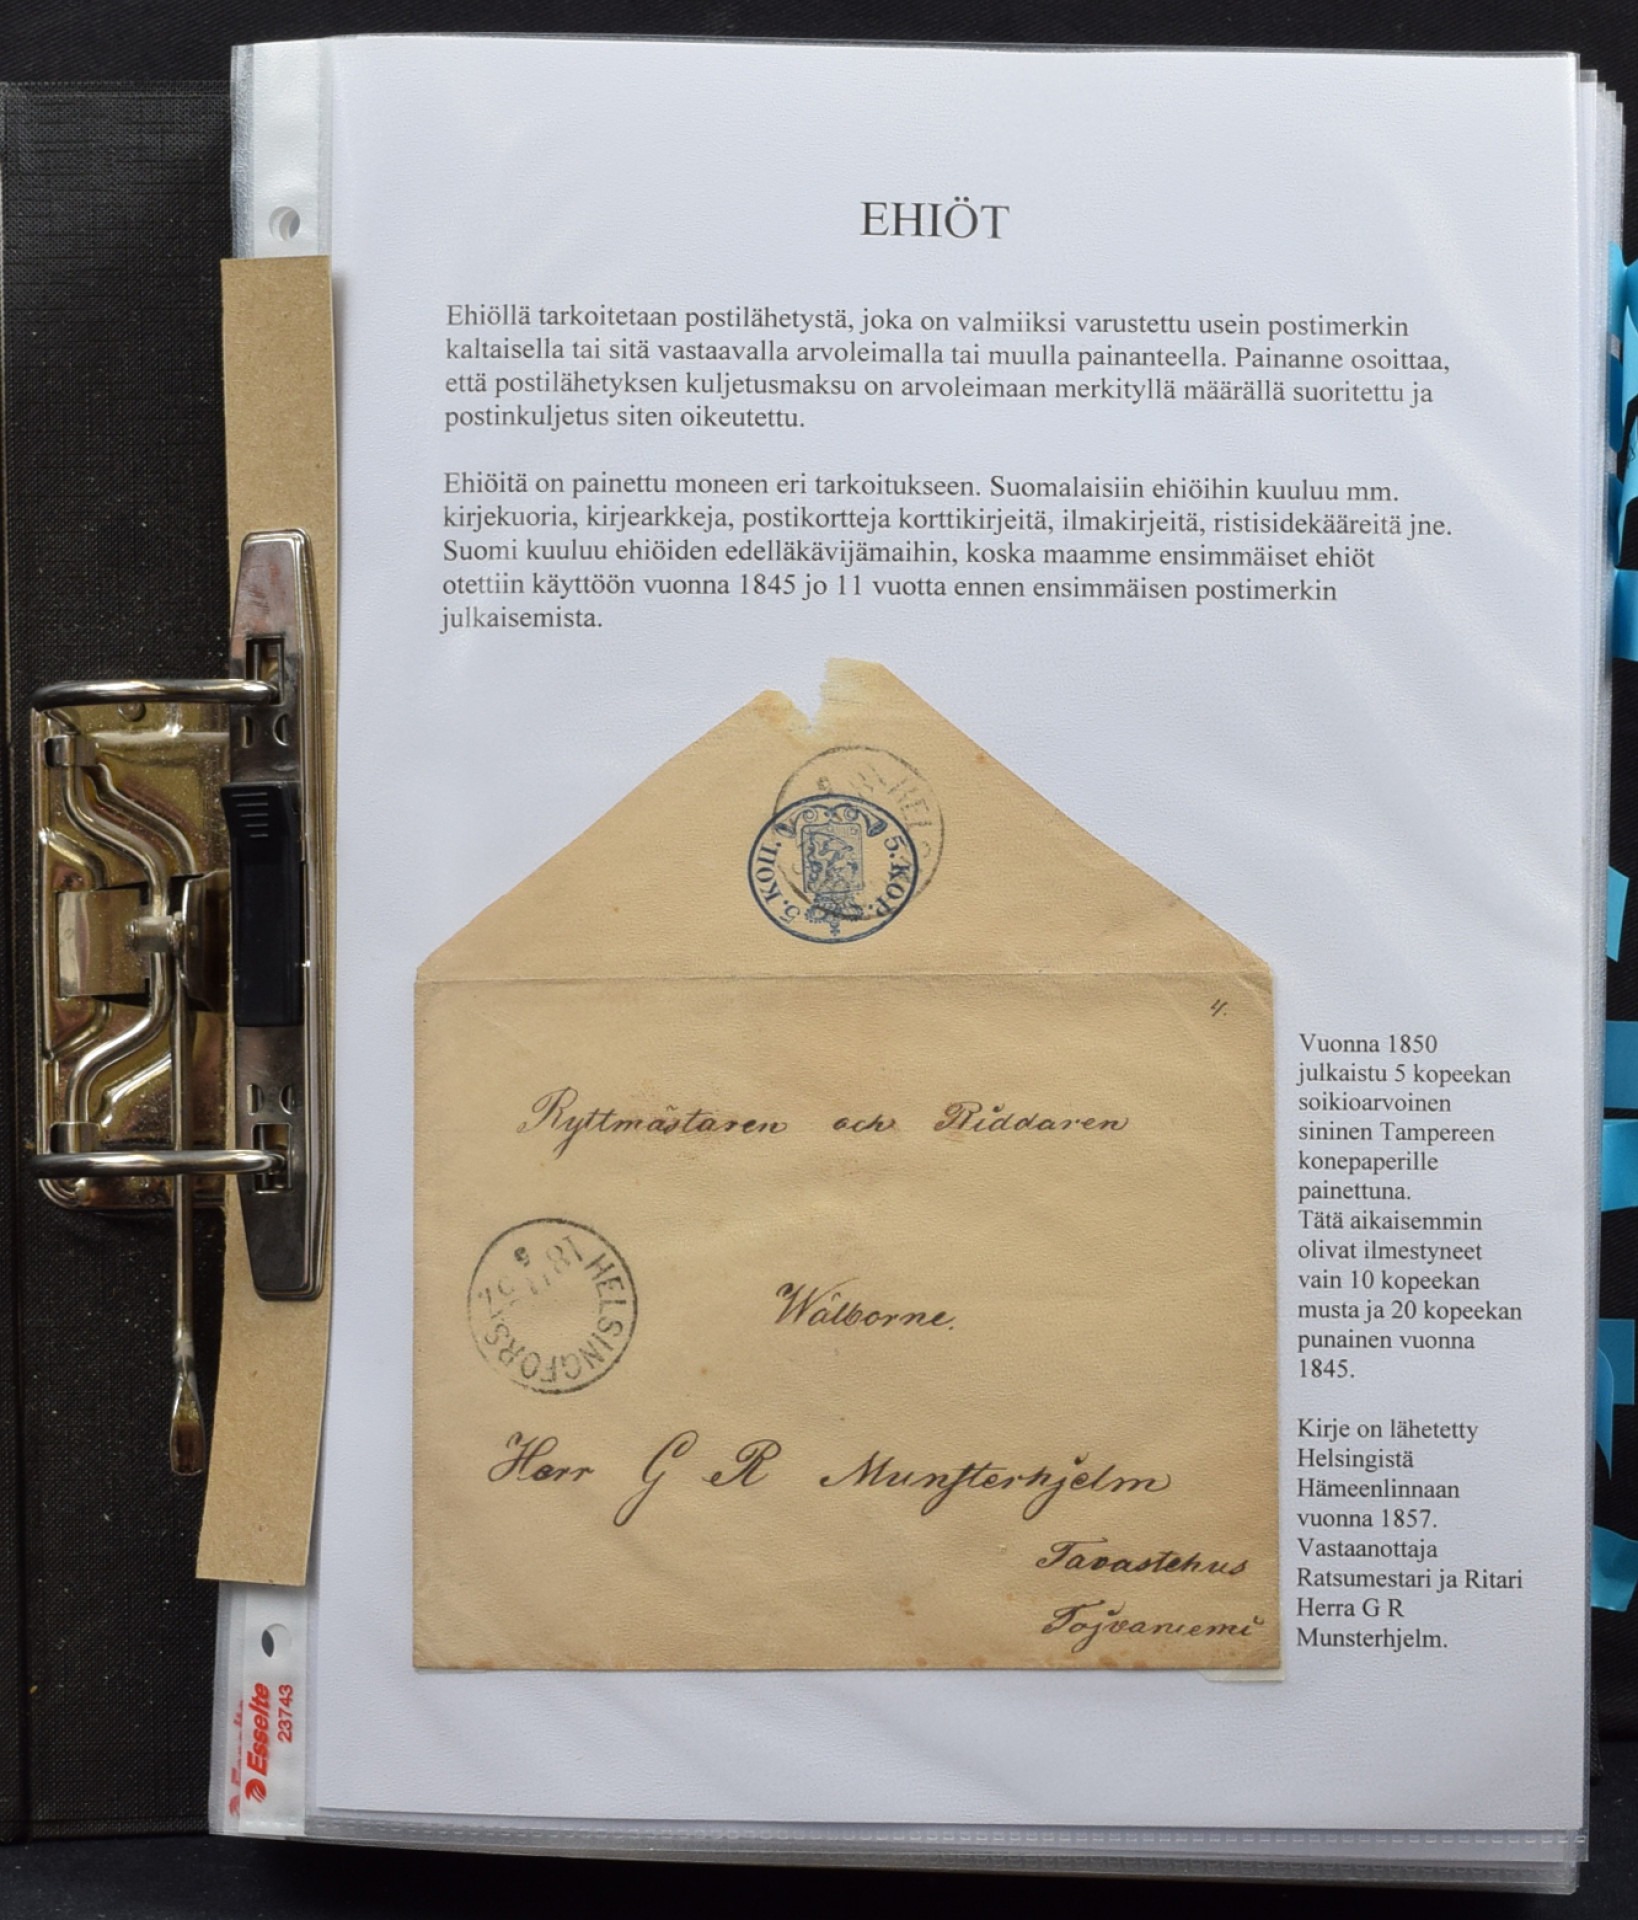 EHIÖT
Ehiöllä tarkoitetaan postilähetystä, joka on valmiiksi varustettu usein postimerkin
kaltaisella tai sitä vastaavalla arvoleimalla tai muulla painanteella. Painanne osoittaa,
että postilähetyksen kuljetusmaksu on arvoleimaan merkityllä määrällä suoritettu ja
postinkuljetus siten oikeutettu.
Ehiöitä on painettu moneen eri tarkoitukseen. Suomalaisiin ehiöihin kuuluu mm.
kirjekuoria, kirjearkkeja, postikortteja korttikirjeitä, ilmakirjeitä, ristisidekääreitä jne.
Suomi kuuluu ehiöiden edelläkävijämaihin, koska maamme ensimmäiset ehiöt
otettiin käyttöön vuonna 1845 jo 11 vuotta ennen ensimmäisen postimerkin
julkaisemista.
5. КОП. 5. KOP.
4.
Ryttmästaren och Riddaren
HELSINGFORS
Wälborne.
Herr G R Munsterhjelm
Tavastehus
Tojvaniemi
Vuonna 1850
julkaistu 5 kopeekan
soikioarvoinen
sininen Tampereen
konepaperille
painettuna.
Tätä aikaisemmin
olivat ilmestyneet
vain 10 kopeekan
musta ja 20 kopeekan
punainen vuonna
1845.
Kirje on lähetetty
Helsingistä
Hämeenlinnaan
vuonna 1857.
Vastaanottaja
Ratsumestari ja Ritari
Herra G R
Munsterhjelm.
Esselte
23743